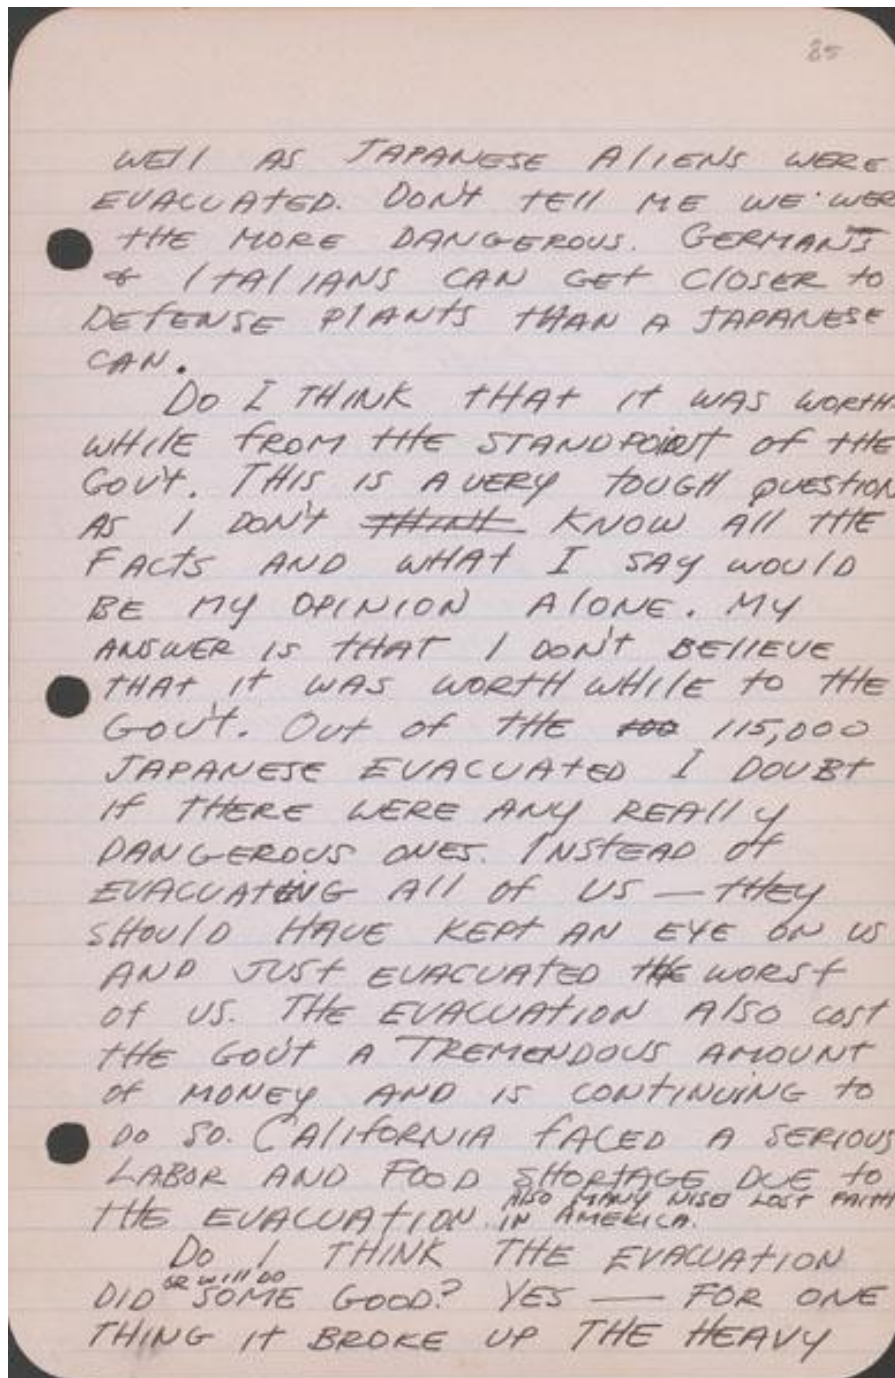 85
WELL AS JAPANESE ALIENS WERE
EVACUATED. DON'T TELL ME WE WER
THE MORE DANGEROUS. GERMANS
& ITALIANS CAN GET CLOSER TO
DEFENSE PLANTS THAN A JAPANESE
CAN.
DO I THINK THAT IT WAS WORTH
WHILE FROM THE STANDPOINT OF THE
GOV'T. THIS IS A VERY TOUGH QUESTION
AS I DON'T THINK KNOW ALL THE
FACTS AND WHAT I SAY WOULD
BE MY OPINION ALONE. MY
ANSWER IS THAT I DON'T BELIEVE
THAT IT WAS WORTH WHILE TO THE
GOV'T. OUT OF THE 100 115,000
JAPANESE EVACUATED I DOUBT
IF THERE WERE ANY REALLY
DANGEROUS ONES. INSTEAD OF
EVACUATING ALL OF US — THEY
SHOULD HAVE KEPT AN EYE ON US
AND JUST EVACUATED THE WORST
OF US. THE EVACUATION ALSO COST
THE GOV'T A TREMENDOUS AMOUNT
OF MONEY AND IS CONTINUING TO
DO SO. CALIFORNIA FACED A SERIOUS
LABOR AND FOOD SHORTAGE DUE TO
THE EVACUATION. ALSO MANY NISEI LOST FAITH
IN AMERICA.
DO I THINK THE EVACUATION
DID OR WILL DO SOME GOOD? YES — FOR ONE
THING IT BROKE UP THE HEAVY